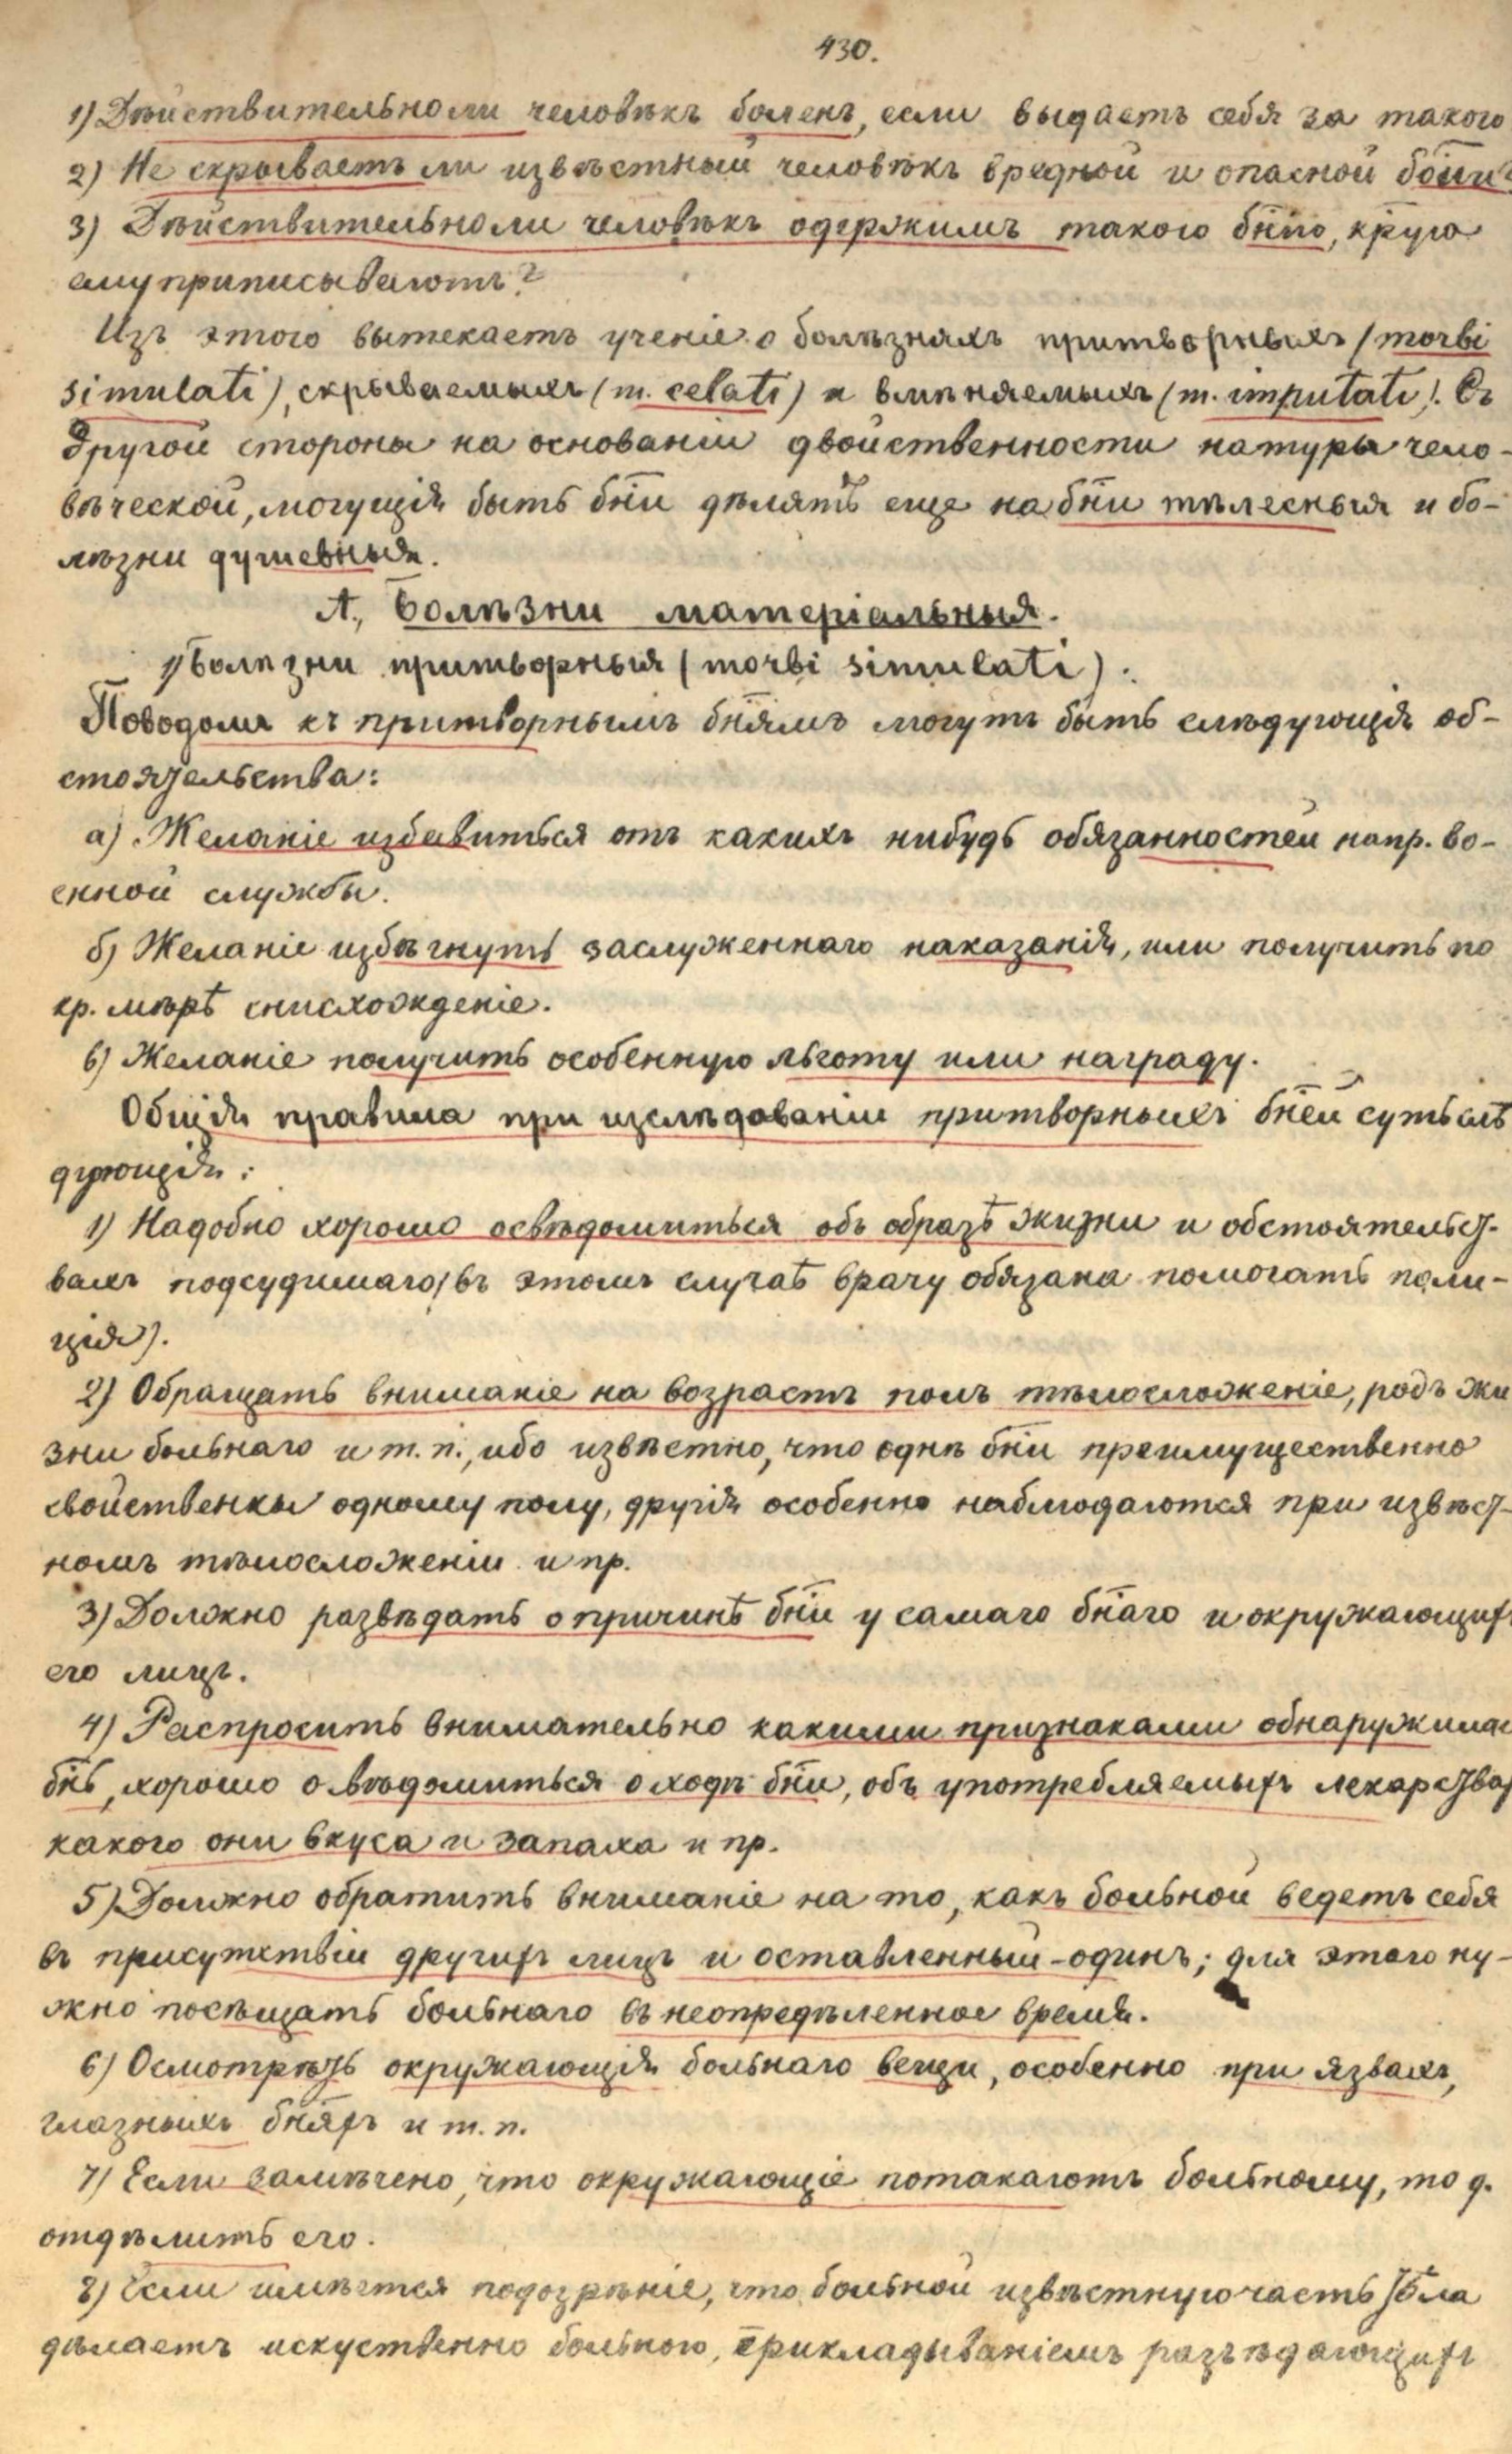 430.
1) Дѣйствительноли человѣкъ боленъ, если выдаетъ себя за такого
2) Не скрываетъ ли извѣстный человѣкъ вредной и опасной
3) Дѣйствительноли человѣкъ одержимъ такою бнію,
ему приписываютъ?
Изъ этого вытекаетъ ученіе о болѣзняхъ притворныхъ (morbi
simulati), скрываемыхъ (m. celati) и вмѣняемыхъ (m. imputati). Съ
другой стороны на основаніи двойственности натуры чело-
вѣческой, могущія быть бни дѣлятъ еще на бни тѣлесныя и бо-
лѣзни душевныя.
А., Болѣзни матеріальныя.
1) Болѣзни притворныя (morbi simulati).
Поводомъ къ притворнымъ бнямъ могутъ быть слѣдующія об-
стоятельства:
а) Желаніе избавиться отъ какихъ нибудь обязанностей напр. во-
енной службы.
б) Желаніе избѣгнуть заслуженнаго наказанія, или получить по
кр. мѣрѣ снисхожденіе.
в) Желаніе получить особенную льготу или награду.
Общія правила при изслѣдованіи притворныхъ бней суть слѣ
дующія:
1) Надобно хорошо освѣдомиться объ образѣ жизни и обстоятельст-
вахъ подсудимаго (въ этомъ случаѣ врачу обязана помогать поли-
ція).
2) Обращать вниманіе на возрастъ полъ тѣлосложеніе, родъ жи
зни больнаго и т. п., ибо извѣстно, что однѣ бни преимущественно
свойственны одному полу, другія особенно наблюдаются при извѣст-
номъ тѣлосложеніи и пр.
3) Должно развѣдать о причинѣ бни у самаго бнаго и окружающихъ
его лицъ.
4) Распросить внимательно какими признаками обнаружилас
бнь, хорошо овѣдомиться о ходѣ бни, объ употребляемыхъ лекарствах
какого они вкуса и запаха и пр.
5) Должно обратить вниманіе на то, какъ больной ведетъ себя
въ присутствіи другихъ лицъ и оставленный - одинъ; для этого ну-
жно посѣщать больнаго въ неопредѣленное время.
6) Осмотрѣть окружающія больнаго вещи, особенно при язвахъ,
глазныхъ бняхъ и т. п.
7) Если замѣчено, что окружающіе потакаютъ больному, то д.
отдѣлить его.
8) Если имѣется подозрѣніе, что больной извѣстную часть тѣла
дѣлаетъ искуственно больною, прикладываніемъ разъѣдающихъ